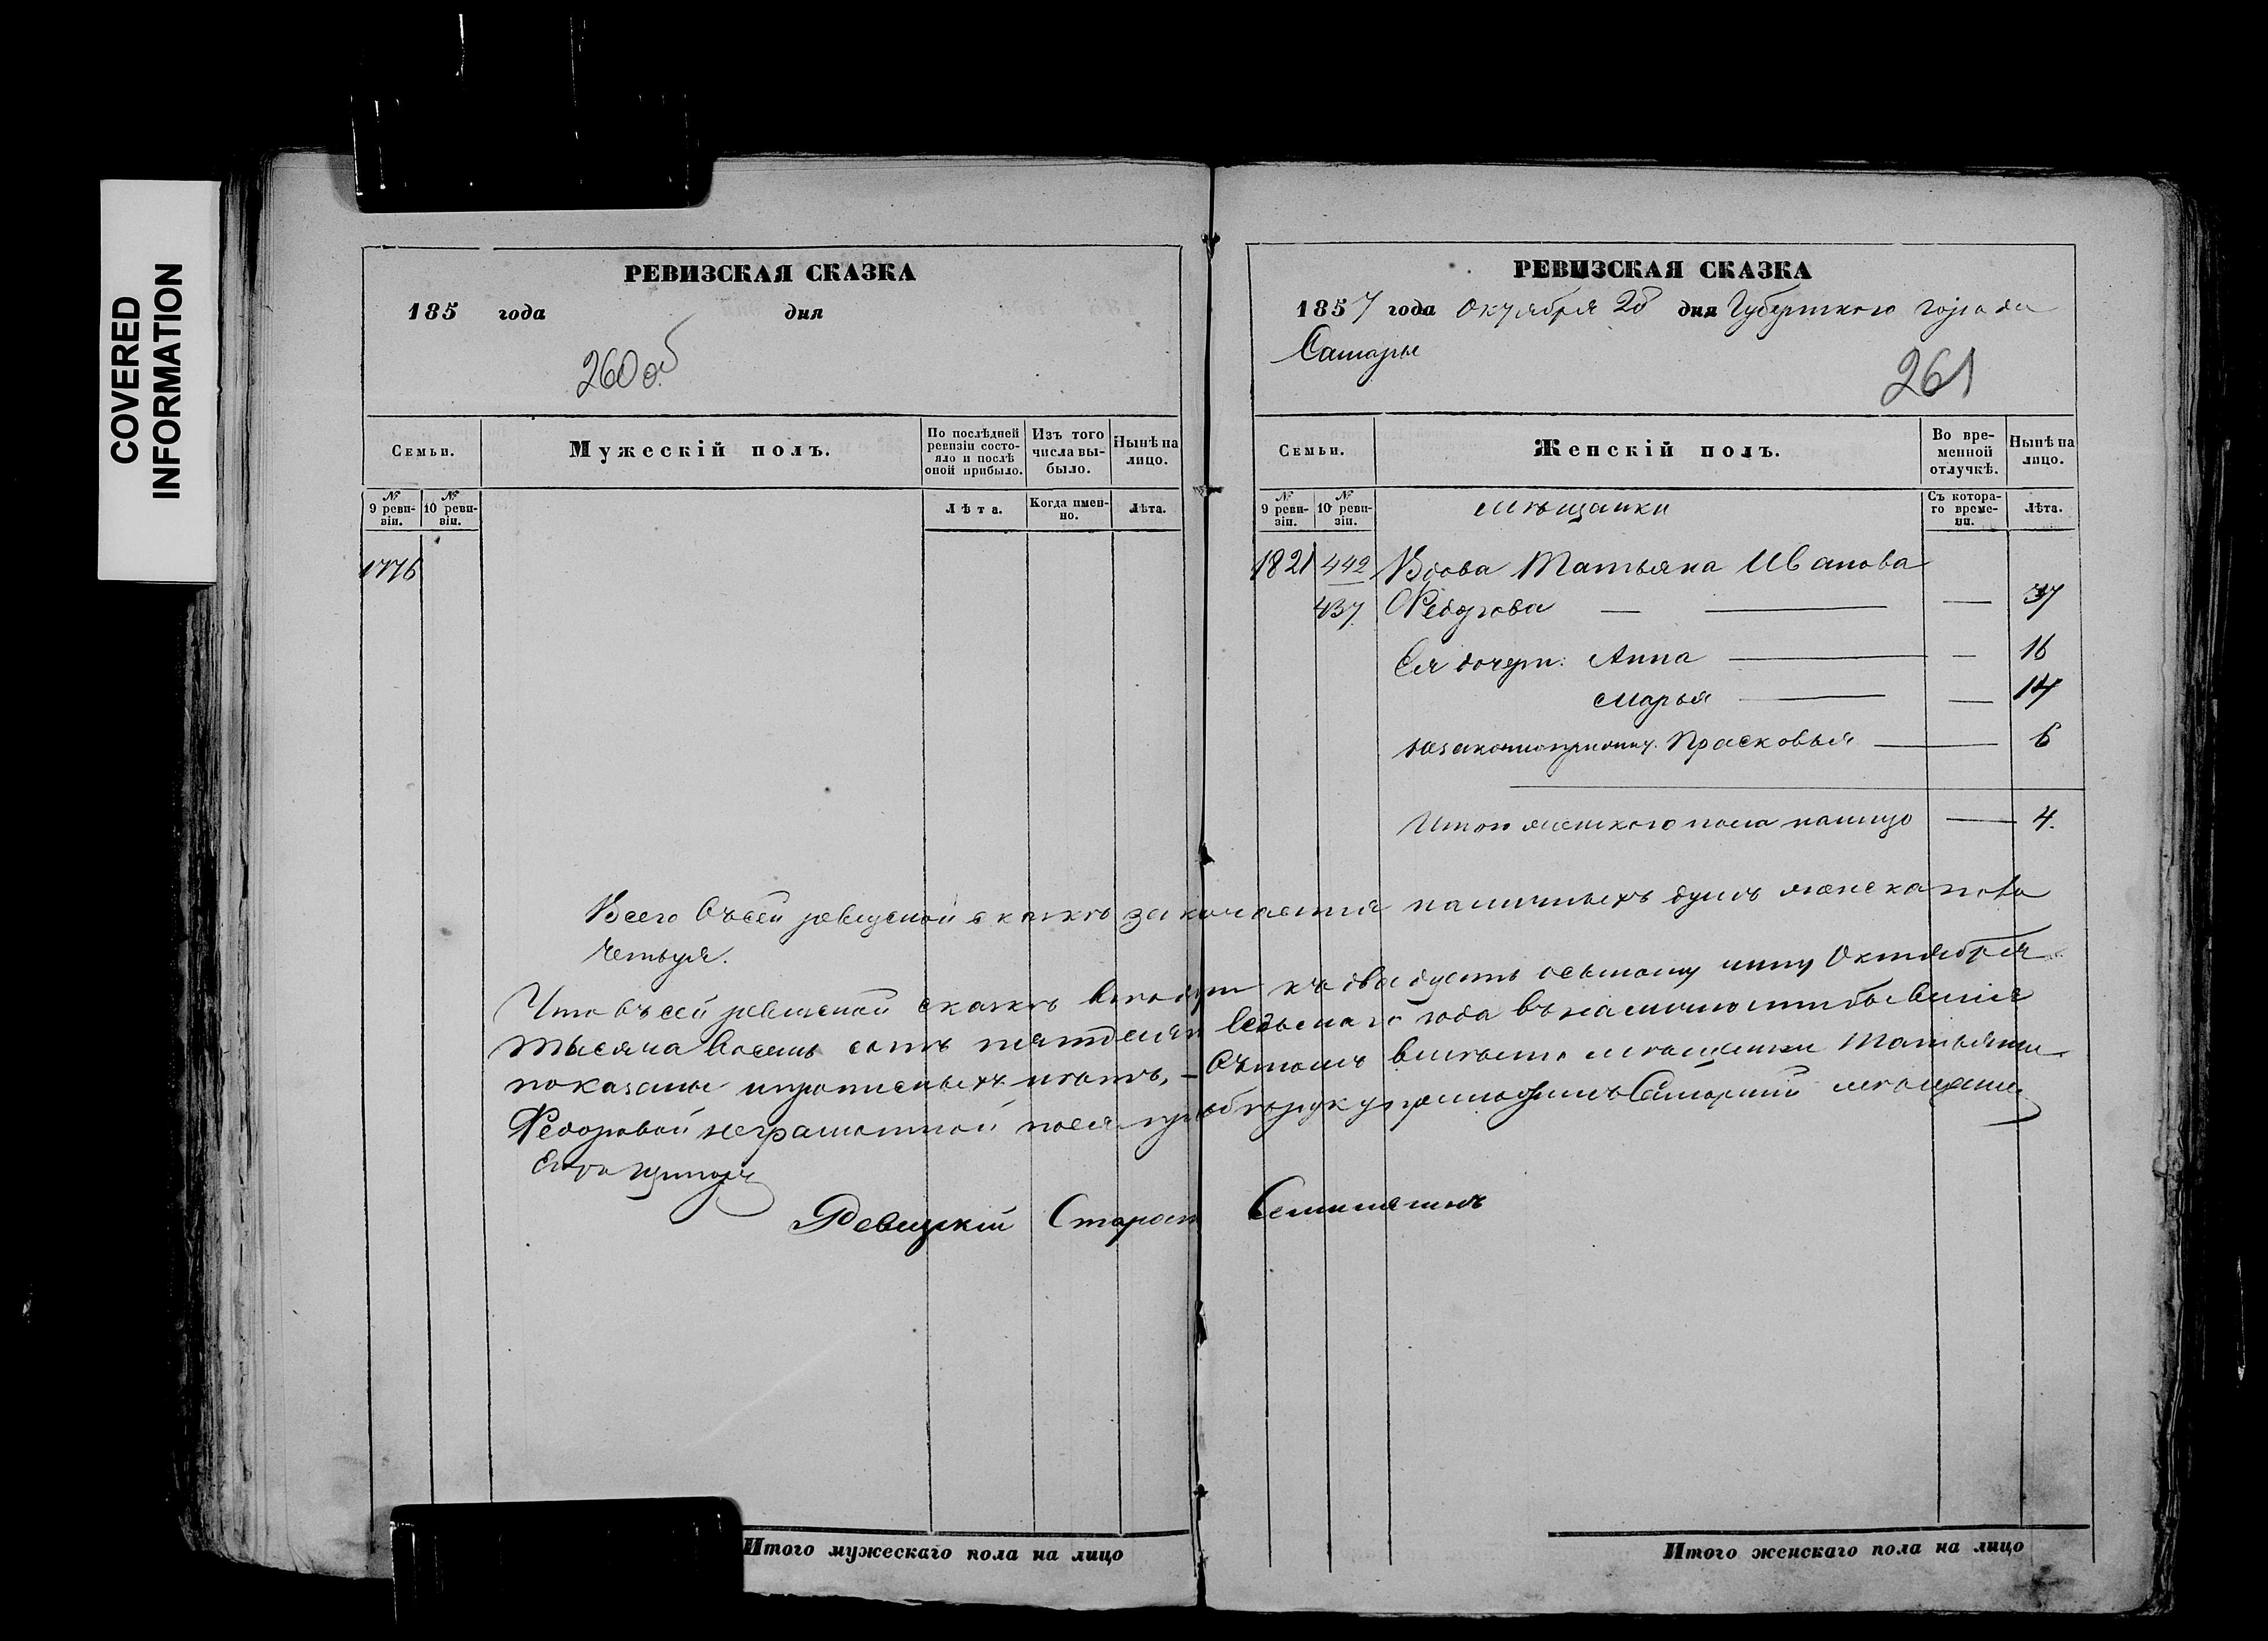 COVERED
INFORMATION
РЕВИЗСКАЯ СКАЗКА
185 года дня
260 об
Семьи.
Мужескій полъ.
По послѣдней ревизіи состояло и послѣ оной прибыло.
Изъ того числа выбыло.
Нынѣ на лицо.
№ 9 ревизіи.
№ 10 ревизіи.
Лѣта.
Когда именно.
Лѣта.
1776
РЕВИЗСКАЯ СКАЗКА
1857 года Октября 28 дня Губернскаго города
Самары
261
Семьи.
Женскій полъ.
Во временной отлучкѣ.
Нынѣ на лицо.
№ 9 ревизіи.
№ 10 ревизіи.
мѣщанки
Съ котораго времени.
Лѣта.
1821 442 Вдова Татьяна Иванова
437 Федорова — — — 37
Ея дочери: Анна — — 16
Марья — — 14
Прасковья — 6
Итого женскаго пола налицо — 4.
Всего въ сей ревизской сказкѣ заключается наличныхъ душъ женска пола
четыре.
Что въ сей ревизской сказкѣ къ двадцать осьмому Октября
тысяча восемь сотъ пятдесят седьмаго года въ наличности
показаны и прописныхъ нѣтъ, — Въ томъ вмѣсто мѣщанки Татьяны
Федоровой неграмотной руку приложилъ Самарскій мѣщанинъ
Ревизскій Староста
Итого мужескаго пола на лицо
Итого женскаго пола на лицо